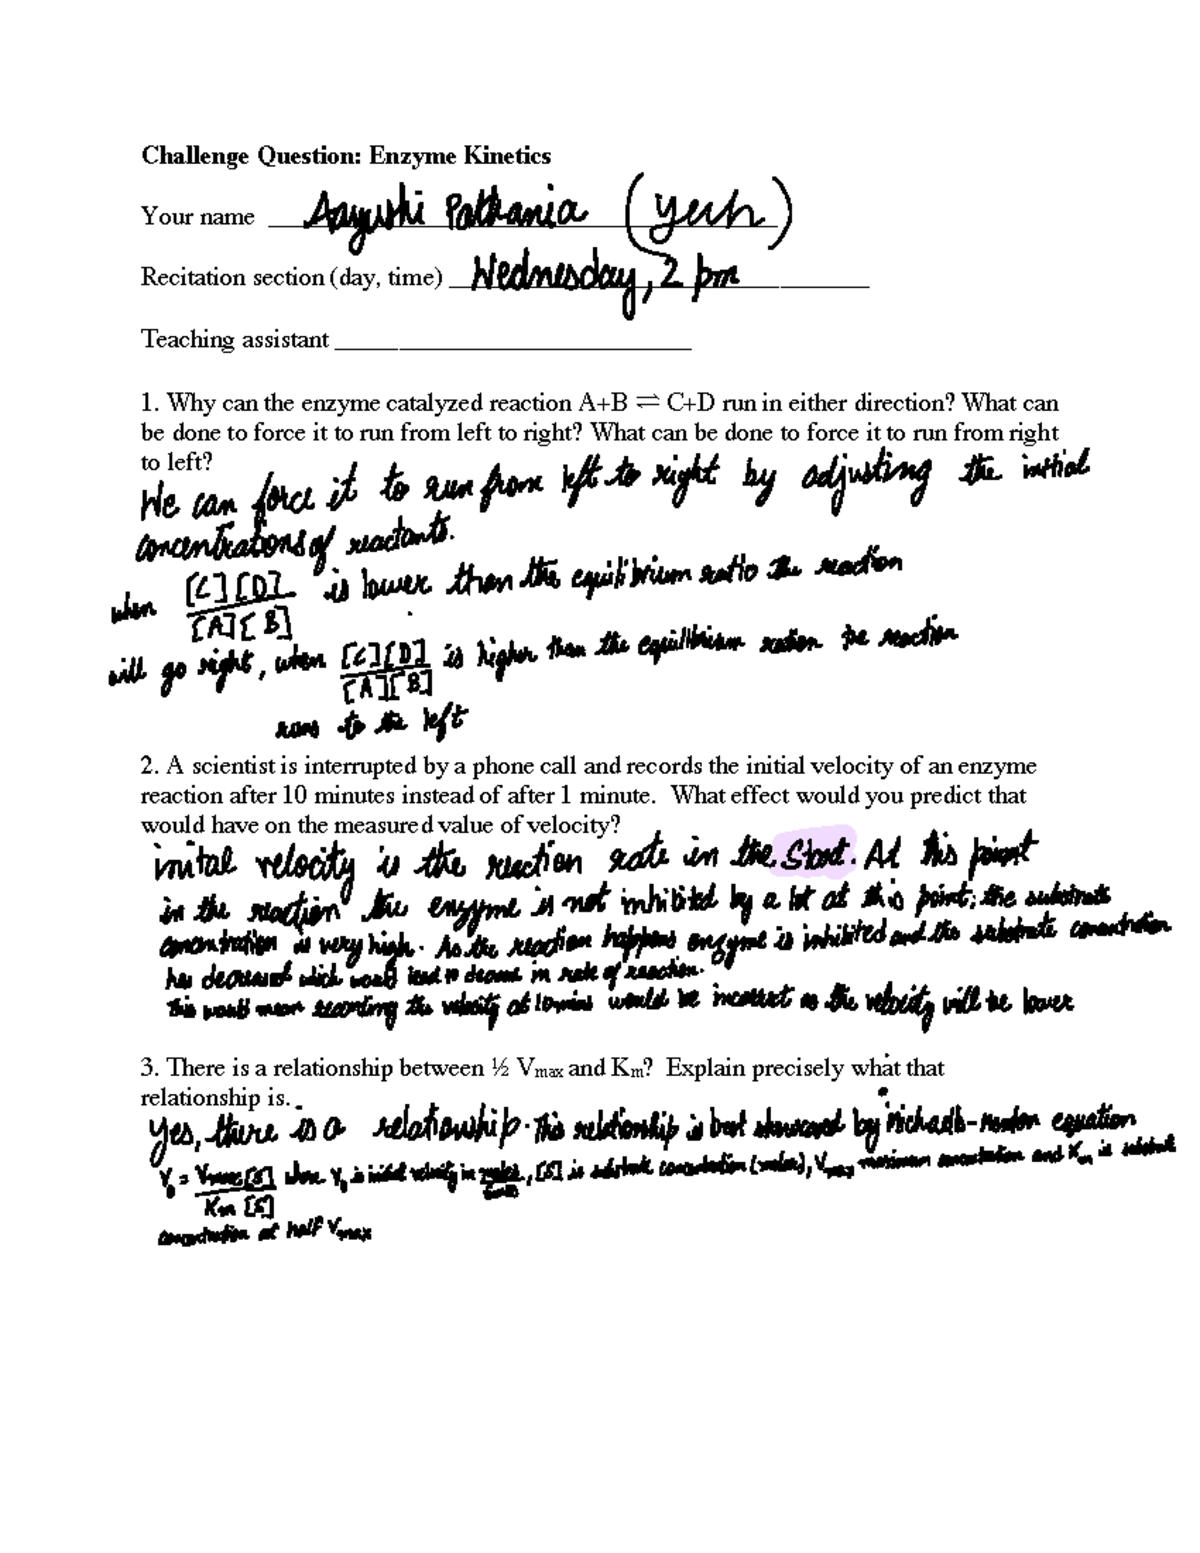 Challenge Question: Enzyme Kinetics
Your name Aayushi Pathania (yeah)
Recitation section (day, time) Wednesday, 2 pm
Teaching assistant
1. Why can the enzyme catalyzed reaction A+B ⇌ C+D run in either direction? What can
be done to force it to run from left to right? What can be done to force it to run from right
to left?
We can force it to run from left to right by adjusting the initial
concentrations of reactants.
when [C][D]/[A][B] is lower than the equilibrium ratio the reaction
will go right, when [C][D]/[A][B] is higher than the equilibrium ration the reaction
runs to the left
2. A scientist is interrupted by a phone call and records the initial velocity of an enzyme
reaction after 10 minutes instead of after 1 minute. What effect would you predict that
would have on the measured value of velocity?
inital velocity is the reaction rate in the Start. At this point
in the reaction the enzyme is not inhibited by a lot at this point; the substrate
concentration is very high. As the reaction happens enzyme is inhibited and the substrate concentration
has decreased which would lead to decrease in rate of reaction.
This would mean recording the velocity at 10 mins would be incorrect as the velocity will be lower
3. There is a relationship between ½ Vmax and Km? Explain precisely what that
relationship is.
Yes, there is a relationship. This relationship is best showcased by equation
V₀ = Vmax[S]/Km [S] where V₀ is initial velocity in , [S] is substrate concentration (molar), Vmax maximum concentration and Km is substrate
concentration at half Vmax